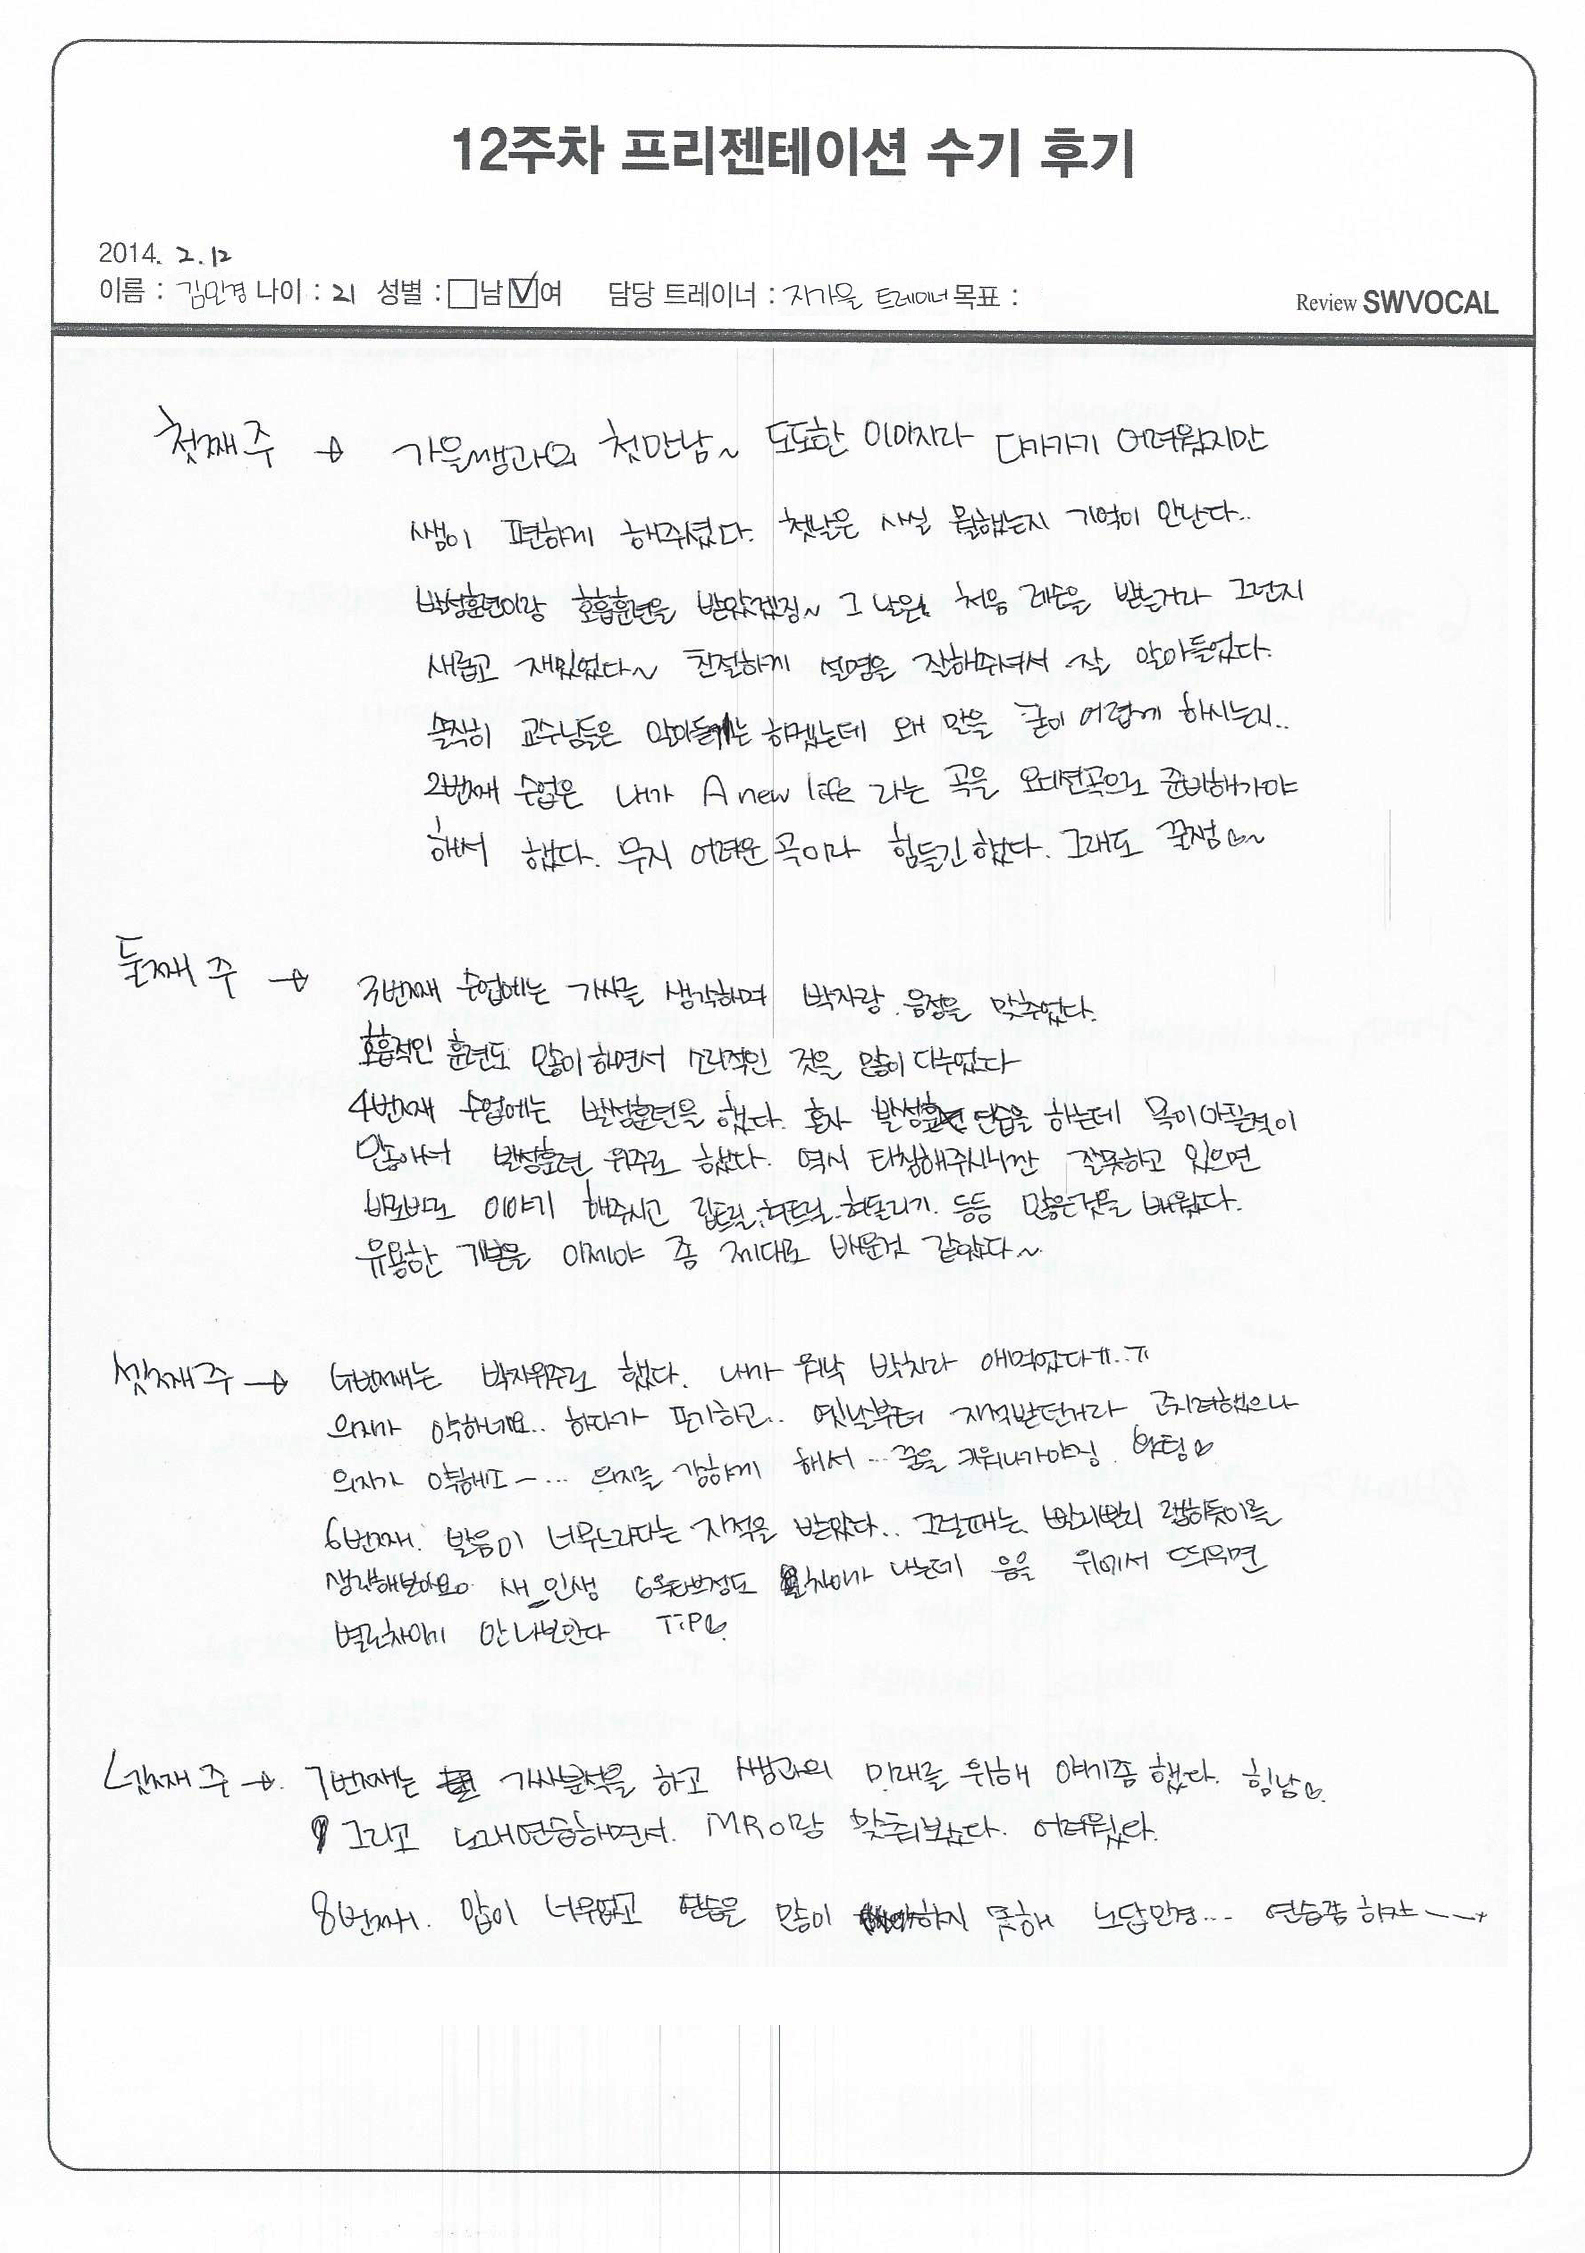 12주차 프리젠테이션 수기 후기
2014. 2.12
이름 : 김민경 나이 : 21 성별 : 남 여 담당 트레이너 : 자가을 트레이너 목표 :
Review SWVOCAL
첫째주 → 가을쌤과의 첫만남~ 도도한 이미지라 다가가기 어려웠지만
쌤이 편하게 해주셨다. 첫날은 사실 뭘했는지 기억이 안난다..
발성훈련이랑 호흡훈련을 받았겠징~ 그 날은 처음 레슨을 받는거라 그런지
새롭고 재밌었다~ 친절하게 설명을 잘해주셔서 잘 알아들었다.
솔직히 교수님들은 알아듣게는 하겠는데 왜 말을 굳이 어렵게 하시는지..
2번째 수업은 내가 A new life 라는 곡을 오디션곡으로 준비해가야
해서 했다. 무지 어려운 곡이라 힘들긴 했다. 그래도 꿀잼♡~
둘째 주 → 3번째 수업에는 가사를 생각하며 박자랑 음정을 맞추었다.
호흡적인 훈련도 많이 하면서 소리적인 것을 많이 다루었다
4번째 수업에는 발성훈련을 했다. 혼자 발성 연습을 하는데 목이 아픈적이
많아서 발성훈련 위주로 했다. 역시 타칭해주시니깐 잘못하고 있으면
바로바로 이야기 해주시고 립트릴, 혀트릴, 혀돌리기 등등 많은것을 배웠다.
유용한 기본을 이제야 좀 제대로 배운것 같았다~
셋째주 → 5번째는 박자위주로 했다. 내가 워낙 박치라 애먹었다ㅠ..ㅠ
의지가 약하네요.. 하다가 포기하고.. 옛날부터 지적받던거라 고치려했으나
의지가 약해또 ㅡ... 의지를 강하게 해서 ... 꿈을 키워나가야징 화팅♡
6번째. 발음이 너무느리다는 지적을 받았다.. 그럴때는 빨리빨리 랩하듯이를
생각해보아요. 새 인생 6옥타브정도 차이가 나는데 음을 위에서 띄우면
별로차이게 안나보인다 TiP♡.
넷째 주 → 7번째는 가사분석을 하고 쌤과의 미래를 위해 얘기좀 했다. 힘남♡.
그리고 노래연습하면서. MR이랑 맞춰보았다. 어려웠다.
8번째. 맘이 너무없고 연습을 많이 하지 못해 노답민경... 연습좀 하자 ㅡㅡ+